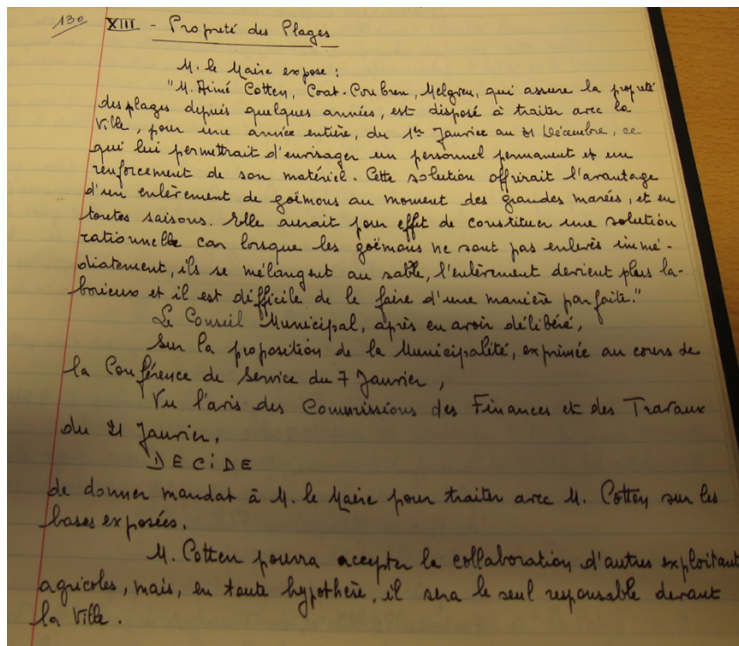 130 XIII - Propreté des Plages
M. le Maire expose :
"M. Aimé Cotten, Coat-Conbren, Melgven, qui assure la propreté
des plages depuis quelques années, est disposé à traiter avec la
Ville, pour une année entière, du 1er Janvier au 31 Décembre, ce
qui lui permettrait d'envisager un personnel permanent et un
renforcement de son matériel. Cette solution offrirait l'avantage
d'un enlèvement de goëmons au moment des grandes marées, et en
toutes saisons. Elle aurait pour effet de constituer une solution
rationnelle car lorsque les goëmons ne sont pas enlevés immé-
diatement, ils se mélangent au sable, l'enlèvement devient plus la-
borieux et il est difficile de le faire d'une manière parfaite."
Le Conseil Municipal, après en avoir délibéré,
Sur la proposition de la Municipalité, exprimée au cours de
la Conférence de Service du 7 Janvier,
Vu l'avis des Commissions des Finances et des Travaux
du 21 Janvier,
DECIDE
de donner mandat à M. le Maire pour traiter avec M. Cotten sur les
bases exposées.
M. Cotten pourra accepter la collaboration d'autres exploitant
agricoles, mais, en toute hypothèse, il sera le seul responsable devant
la Ville.